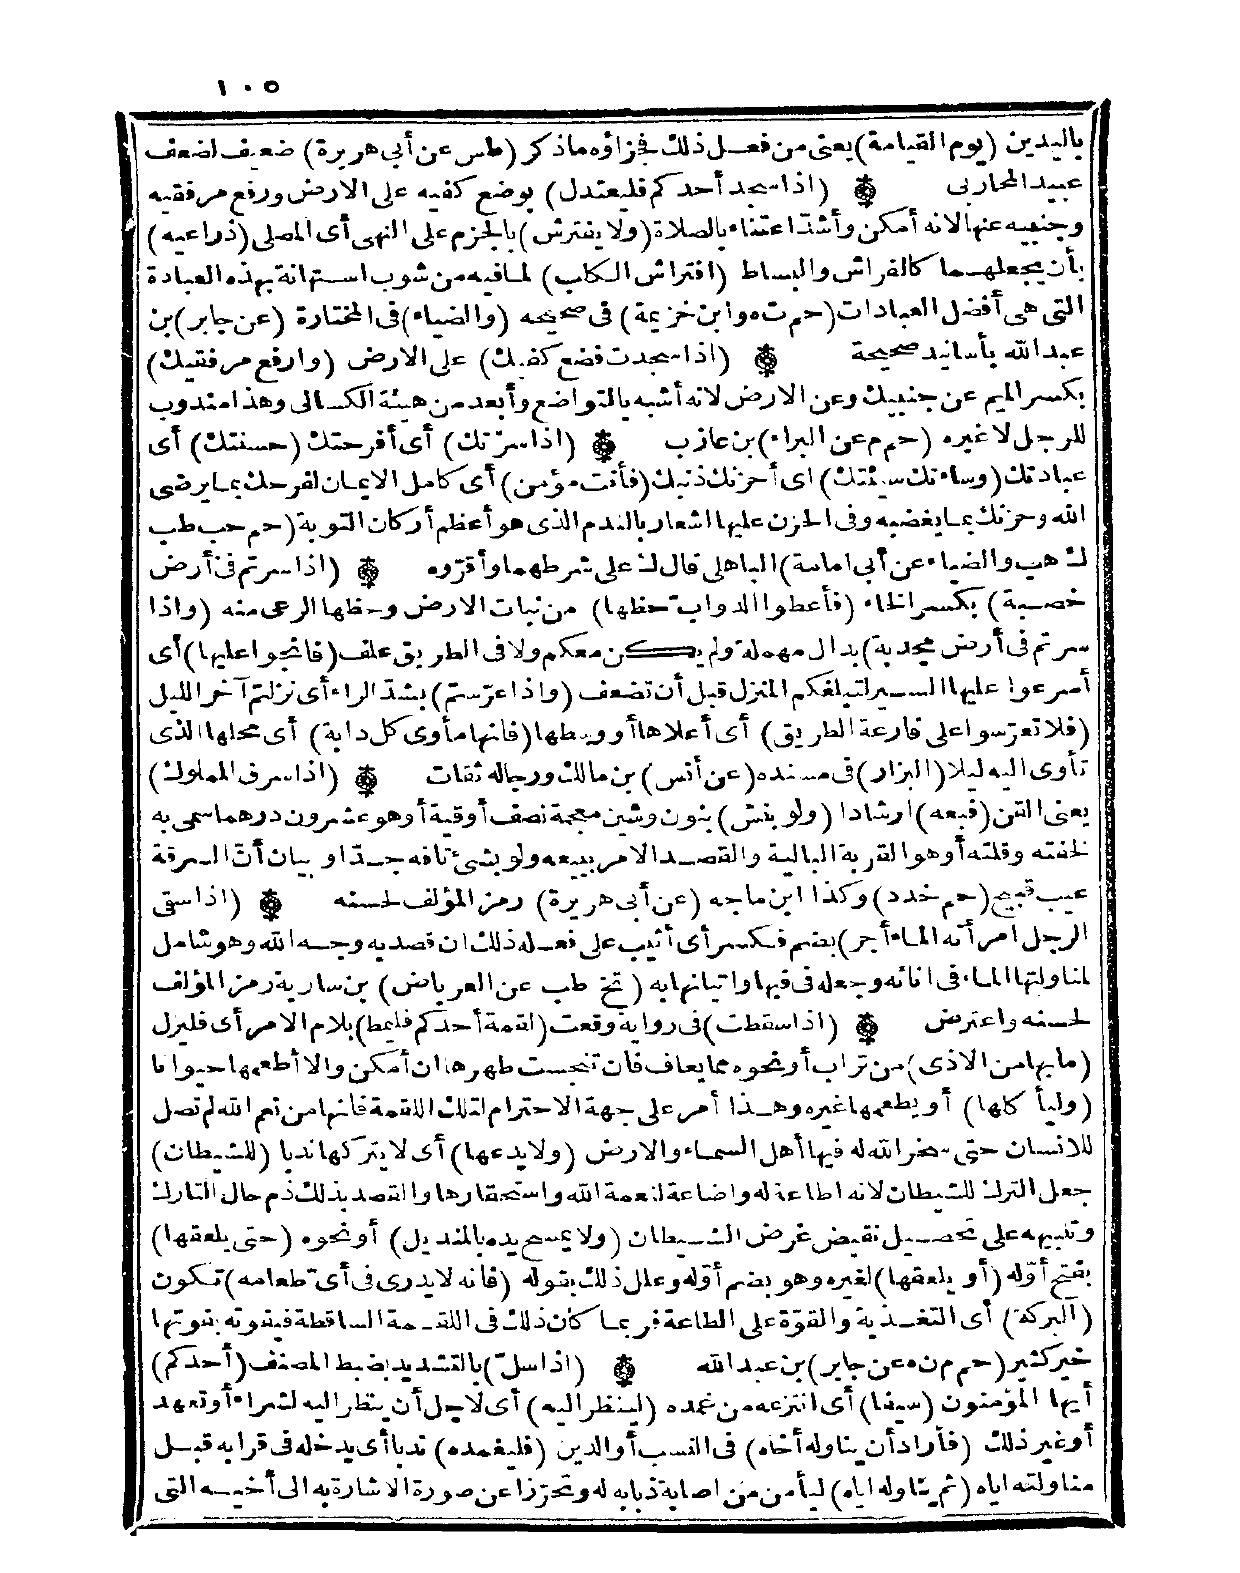 ١٠٥
باليدين (يوم القيامة) يعنى من فعل ذلك فجزاؤه ماذكر (طس عن أبى هريرة) ضعيف لضعف
عبيد المحاربى (اذا سجد أحدكم فليعتدل) بوضع كفيه على الارض ورفع مرفقيه
وجنبيه عنها لانه أمكن وأشدّ اعتناء بالصلاة (ولا يفترش) بالجزم على النهى أى المصلى (ذراعيه)
بأن يجعلهما كالفراش والبساط (افتراش الكلب) لمافيه من شوب استهانة بهذه العبادة
التى هى أفضل العبادات (حم ت ه وابن خزيمة) فى صحيحه (والضياء) فى المختارة (عن جابر) بن
عبد الله بأسانيد صحيحة (اذا سجدت فضع كفيك) على الارض (وارفع مرفقيك)
بكسر الميم عن جنبيك وعن الارض لانه أشبه بالتواضع وأبعد من هيئة الكسالى وهذا مندوب
للرجل لا غيره (حم م عن البراء) بن عازب (اذا سرّتك) أى أفرحتك (حسنتك) أى
عبادتك (وساءتك سيئتك) اى أحزنك ذنبك (فأنت مؤمن) أى كامل الايمان لفرحك بما يرضى
الله وحزنك بما يغضبه وفى الحزن عليها اشعار بالندم الذى هو أعظم أركان التوبة (حم حب طب
ك هب والضياء عن أبى امامة) الباهلى قال ك على شرطهما وأقرّوه (اذا سرتم فى أرض
خصبة) بكسر الخاء (فأعطوا الدواب حظها) من نبات الارض وحظها الرعى منه (واذا
سرتم فى أرض مجدبة) بدال مهملة ولم يكن معكم ولا فى الطريق علف (فانجوا عليها) أى
أسرعوا عليها السير لتبلغكم المنزل قبل أن تضعف (واذا عرّستم) بشدّ الراء أى نزلتم آخر الليل
(فلا تعرّسوا على قارعة الطريق) أى أعلاها أو وسطها (فانها مأوى كل دابة) أى محلها الذى
تأوى اليه ليلا (البزار) فى مسنده (عن أنس) بن مالك ورجاله ثقات (اذا سرق المملوك)
يعنى القن (فبعه) ارشادا (ولو بنش) بنون وشين معجمة نصف أوقية أو هو عشرون درهما سمى به
لخفته وقلته أو هو القربة البالية والقصد الامر ببيعه ولو بشئ تافه جدّا وبيان أنّ السرقة
عيب قبيح (حم خد د) وكذا ابن ماجه (عن أبى هريرة) رمز المؤلف لحسنه (اذا سقى
الرجل امرأته الماء أجر) بضم فكسر أى أثيب على فعله ذلك ان قصد به وجه الله وهو شامل
لمناولتها الماء فى انائه وجعله فى فيها واتيانها به (تخ طب عن العرباض) بن سارية رمز المؤلف
لحسنه واعترض (اذا سقطت) فى رواية وقعت (لقمة أحدكم فليمط) بلام الامر أى فليزل
(ما بها من الاذى) من تراب أو نحوه مما يعاف فان تنجست طهرها ان أمكن والا أطعمها حيوانا
(وليأكلها) أو يطعمها غيره وهذا أمر على جهة الاحترام لتلك اللقمة فانها من نعم الله لم تصل
للانسان حتى سخر الله له فيها أهل السماء والارض (ولا يدعها) أى لا يتركها ندبا (للشيطان)
جعل الترك للشيطان لانه اطاعة له واضاعة لنعمة الله واستحقارها والقصد بذلك ذم حال التارك
وتنبيهه على تحصيل نقيض غرض الشيطان (ولا يمسح يده بالمنديل) أو نحوه (حتى يلعقها)
بفتح أوّله (أو يلعقها) لغيره وهو بضم أوّله وعلل ذلك بقوله (فانه لا يدرى فى أى طعامه) تكون
(البركة) أى التغذية والقوّة على الطاعة فربما كان ذلك فى اللقمة الساقطة فيفوته بفوتها
خير كثير (حم م ن ه عن جابر) بن عبد الله (اذا سلّ) بالتشديد بضبط المصنف (أحدكم)
أيها المؤمنون (سيفا) أى انتزعه من غمده (لينظر اليه) أى لاجل أن ينظر اليه لشراء أو تعهد
أو غير ذلك (فأراد أن يناوله أخاه) فى النسب أو الدين (فليغمده) ندبا أى يدخله فى قرابه قبل
مناولته اياه (ثم يناوله اياه) ليأمن من اصابة ذبابه له وتحرّزا عن صورة الاشارة به الى أخيه التى